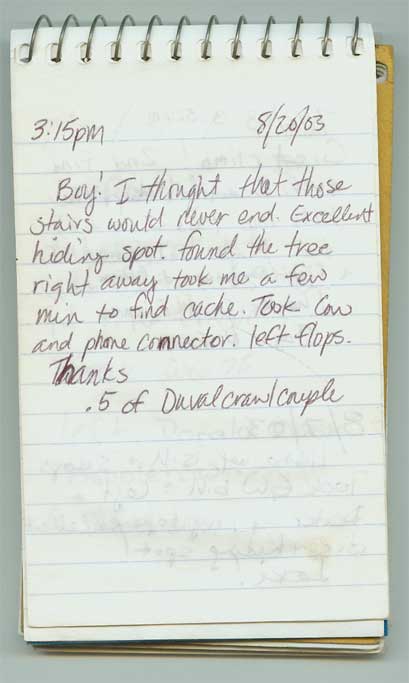 3:15pm 8/20/03
Boy! I thought that those
stairs would never end. Excellent
hiding spot. found the tree
right away took me a few
min to find cache. Took Cow
and phone connector. left flops.
Thanks
.5 of Duvalcrawlcouple